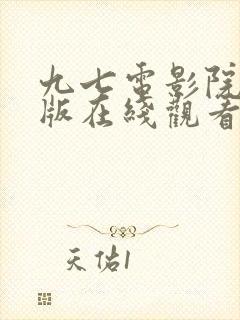 九七電影院
版在綫觀看
天佑1